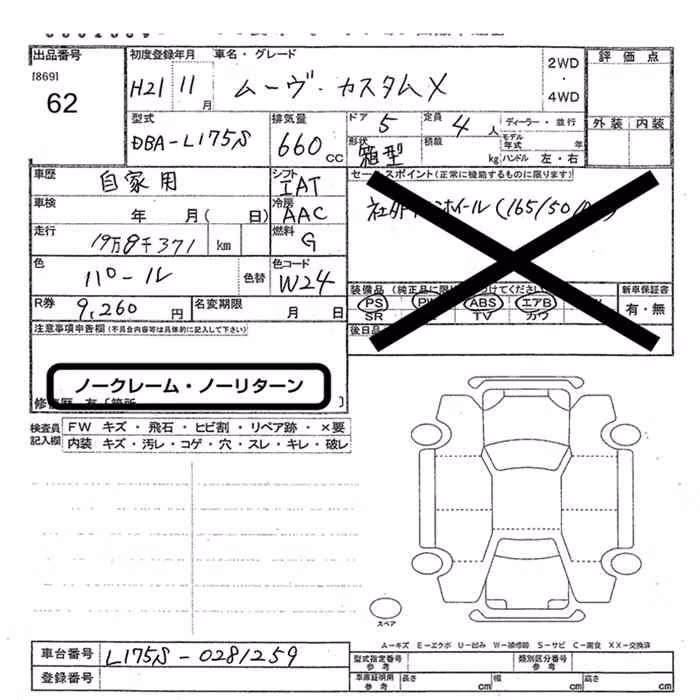 出品番号
[869]
62
初度登録年月 車名・グレード
H21 11月 ムーヴ・カスタムX
2WD
・
4WD
評価点
外装 内装
型式
DBA-L175S
排気量
660 CC
ドア 5
定員 4 人
ディーラー・並行
形状
箱型
積載 kg
モデル年式 年
ハンドル 左・右
車歴 自家用
シフト IAT
セールスポイント(正常に機能するものに限ります)
車検 年 月( 日)
冷房 AAC
社外 ホイール(165/50/
走行 19万8千371 km
燃料 G
色 パール 色替
色コード W24
装備品 (純正品に限 つけてください
新車保証書
有・無
PS PW ABS エアB
SR TV カワ
R券 9,260円
名変期限 月 日
後日品
注意事項申告欄(不具合内容等は具体的に記入して下さい)
ノークレーム・ノーリターン
修復歴 有 [箇所 ]
検査員記入欄
FW キズ・飛石・ヒビ割・リペア跡・×要
内装 キズ・汚レ・コゲ・穴・スレ・キレ・破レ
スペア
A−キズ E−エクボ U−凹み W−補修跡 S−サビ C−腐食 XX−交換済
車台番号 L175S-0281259
登録番号
型式指定番号 参考
類別区分番号 参考
車庫証明用 参考
長さ cm 幅 cm 高さ cm